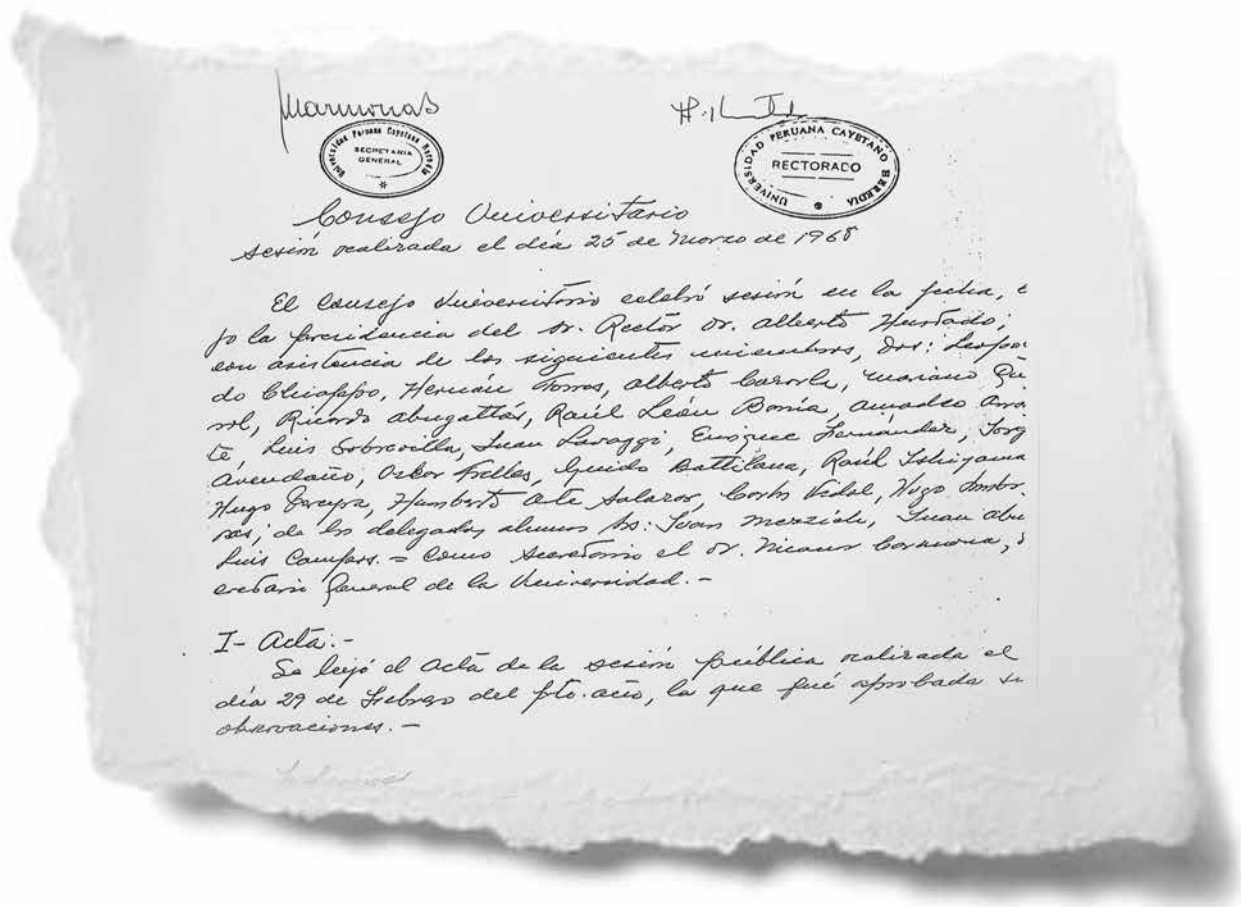 Universidad Peruana Cayetano Heredia
SECRETARIA
GENERAL
UNIVERSIDAD PERUANA CAYETANO HEREDIA
RECTORADO
Consejo Universitario
sesión realizada el día 25 de Marzo de 1968
El Consejo Universitario celebró sesión en la fecha,
jo la presidencia del Sr. Rector Dr. Alberto Hurtado;
con asistencia de los siguientes miembros, Drs: Leopol
do Chiappo, Hernán Torres, Alberto Cazorla, Mariano Que
rol, Ricardo Abugattás, Raúl León Barúa, Amadeo
te, Luis Sobrevilla, Juan Lavaggi, Enrique Fernández, Jorg
Avendaño, Oskar Trelles, Guido Battilana, Raúl Ishiyama
Hugo Pereyra, Humberto Salazar, Carlos Vidal, Hugo
ras; de los delegados alumnos Srs: Juan
Luis Campos. = Como Secretario el Dr. Carmona,
cretario General de la Universidad. -
I- Acta.-
Se leyó el Acta de la sesión pública realizada el
día 29 de Febrero del pte. año, la que fué aprobada
observaciones. -